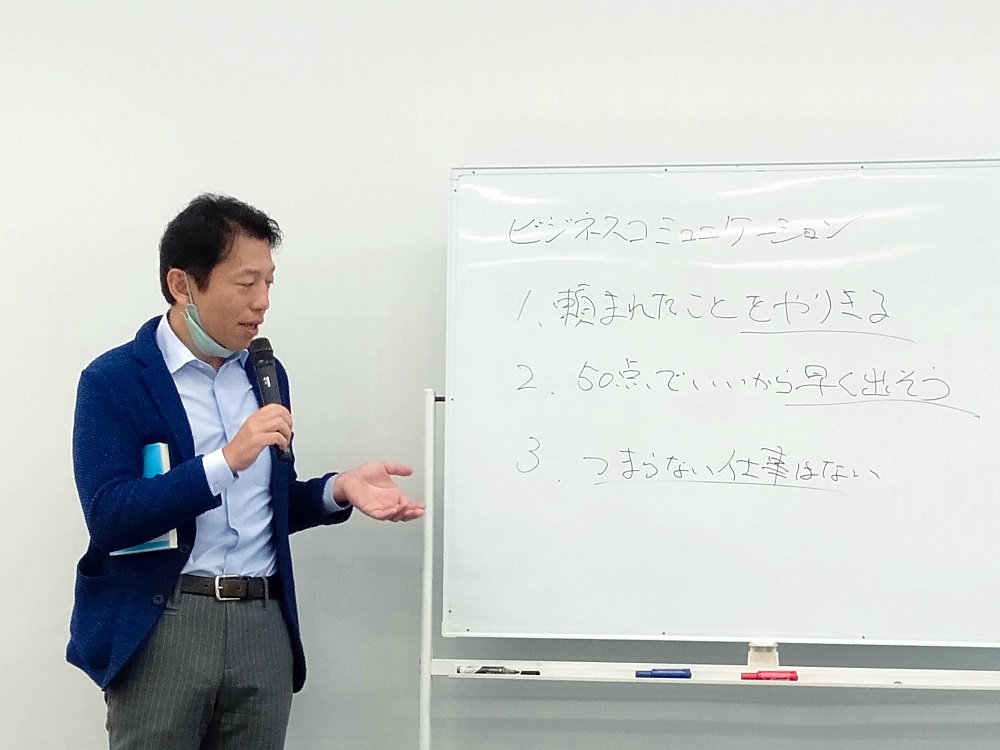 ビジネスコミュニケーション
1. 頼まれたことをやりきる
2. 50点でいいから早く出そう
3. つまらない仕事はない